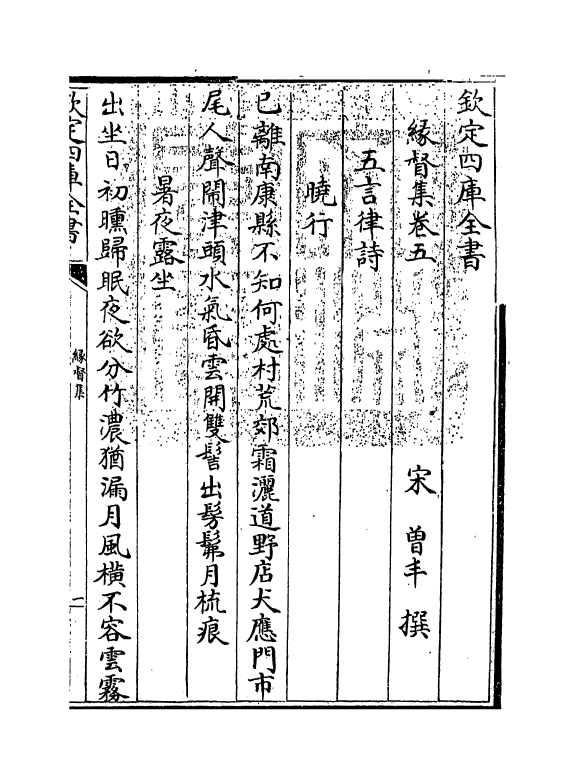 欽定四庫全書
緣督集卷五
宋 曾丰 撰
五言律詩
曉行
已離南康縣不知何處村荒郊霜灑道野店犬應門市
尾人聲鬧津頭水氣昏雲開雙髻出髣髴月梳痕
暑夜露坐
出坐日初曛歸眠夜欲分竹濃猶漏月風橫不容雲霧
欽定四庫全書
緣督集
一